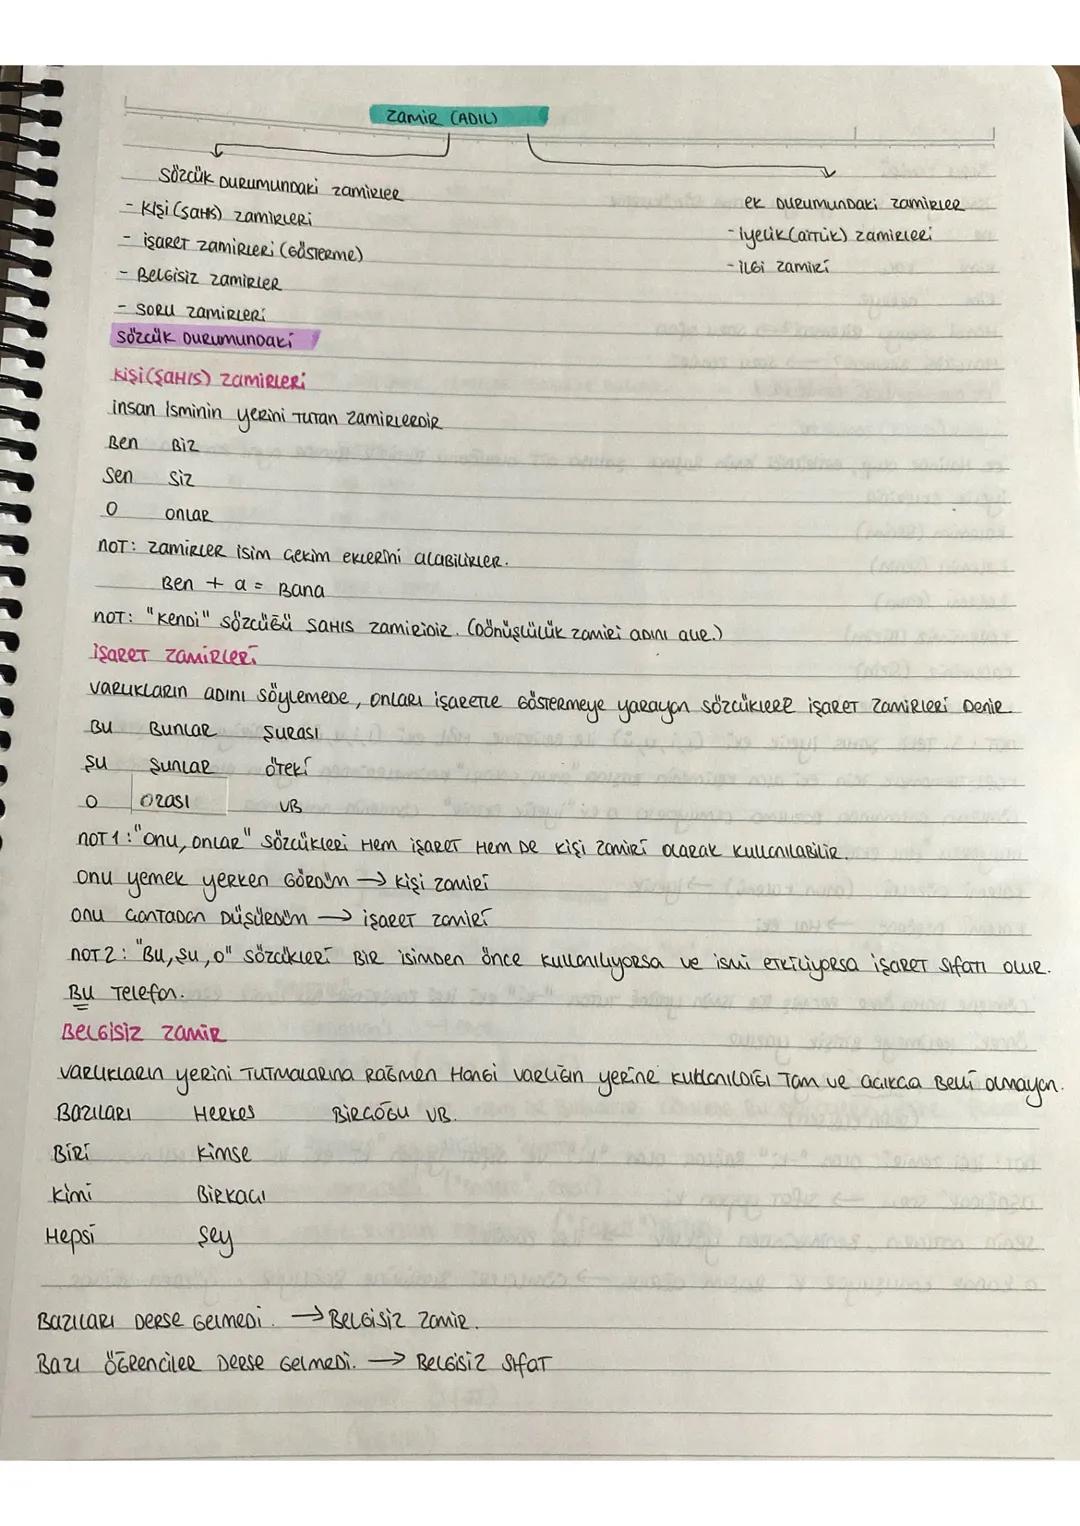 Zamir (ADIL)
Sözcük Durumundaki zamirler
ek Durumundaki zamirler
- Kişi (şahıs) zamirleri
- İyelik (aitlik) zamirleri
- işaret zamirleri (Gösterme)
- ilgi zamiri
- Belgisiz zamirler
- Soru zamirleri
Sözcük Durumundaki
Kişi (Şahıs) zamirleri
insan isminin yerini tutan zamirlerdir
Ben Biz
Sen Siz
O onlar
not: zamirler isim çekim eklerini alabilirler.
Ben + a = Bana
not: "Kendi" sözcüğü şahıs zamiridir. (Dönüşlülük zamiri adını alır.)
işaret zamirleri
varlıkların adını söylemede, onları işaretle göstermeye yarayan sözcüklere işaret zamirleri Denir.
Bu Bunlar şurası
şu şunlar öteki
o orası vb
not 1: "onu, onlar" sözcükleri Hem işaret Hem de kişi zamiri olarak kullanılabilir.
onu yemek yerken Gördüm → kişi zamiri
onu çantadan Düşürdüm → işaret zamiri
not 2: "Bu, şu, o" sözcükleri Bir isimden önce kullanılıyorsa ve ismi etkiliyorsa işaret sıfatı olur.
Bu Telefon.
Belgisiz zamir
varlıkların yerini tutmalarına rağmen Hangi varlığın yerine kullanıldığı Tam ve açıkca Belli olmayan.
Bazıları Herkes Birçoğu vb.
Biri Kimse
Kimi Birkaçı
Hepsi şey
Bazıları Derse Gelmedi. → Belgisiz zamir.
Bazı öğrenciler Derse Gelmedi. → Belgisiz Sıfat